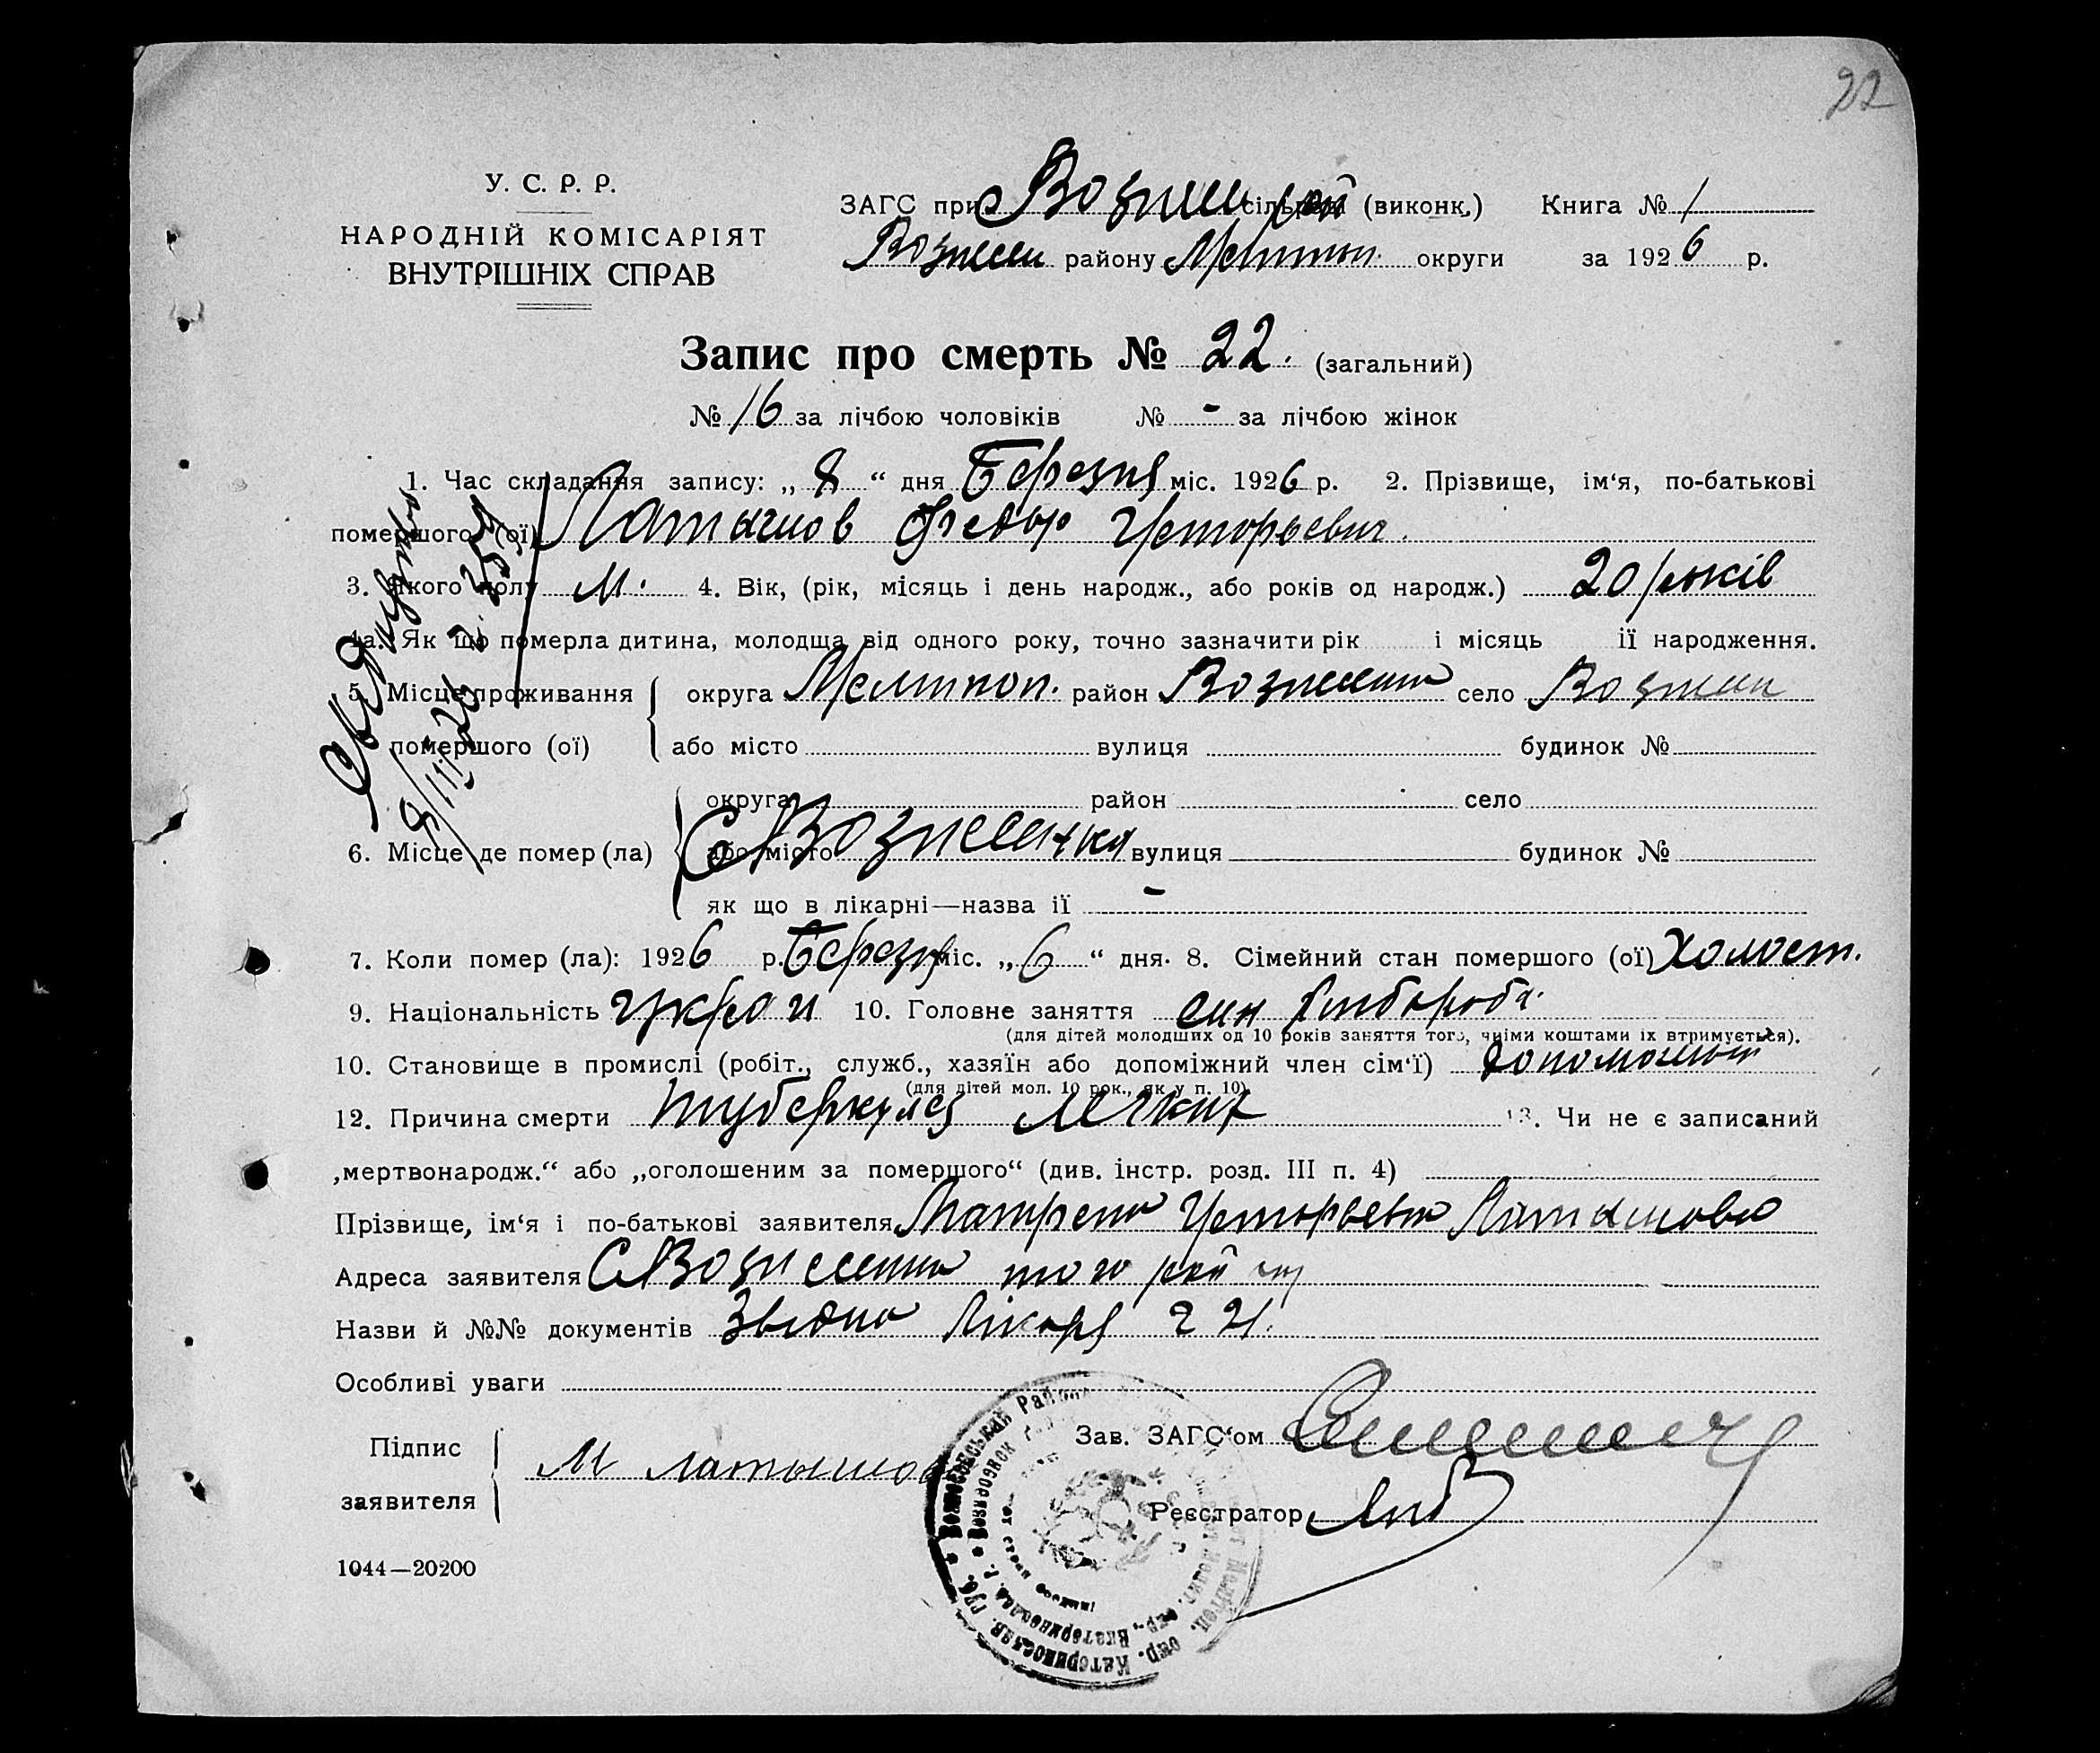 22
У. С. Р. Р.
НАРОДНІЙ КОМІСАРІЯТ
ВНУТРІШНІХ СПРАВ
ЗАГС при Вознесен (виконк.) Книга № 1
Вознесен району Мелітоп. округи за 1926 р.
Запис про смерть № 22. (загальний)
№ 16 за лічбою чоловіків № - за лічбою жінок
1. Час складання запису: „ 8 “ дня Березня міс. 1926 р. 2. Прізвище, ім‘я, по-батькові
помершого (ої) Латишов Федор Игорьевич.
3. Якого полу М. 4. Вік, (рік, місяць і день народж., або років од народж.) 20 років
4а. Як що померла дитина, молодща від одного року, точно зазначити рік і місяць ії народження.
5. Місце проживання округа Мелитоп. район Вознесен село Вознесен
помершого (ої) або місто вулиця будинок №
округа район село
6. Місце де помер (ла) або місто С Вознесенка вулиця будинок №
як що в лікарні—назва ії -
7. Коли помер (ла): 1926 р. Березня міс. „ 6 “ дня. 8. Сімейний стан помершого (ої) холост.
9. Національність украи 10. Головне заняття син хлібороба.
(для дітей молодших од 10 років заняття того, чиїми коштами їх втримується).
10. Становище в промислі (робіт., служб., хазяїн або допоміжний член сім‘ї)
(для дітей мол. 10 рок., як у п. 10)
12. Причина смерти туберкулез легких 13. Чи не є записаний
„мертвонародж.“ або „оголошеним за помершого“ (див. інстр. розд. III п. 4)
Прізвище, ім‘я і по-батькові заявителя Матрена Латишова
Адреса заявителя С Вознесенка того рай
Назви й №№ документів Лікаря 21.
Особливі уваги
Підпис
заявителя М Латышова
Зав. ЗАГС‘ом
Реєстратор
1044—20200